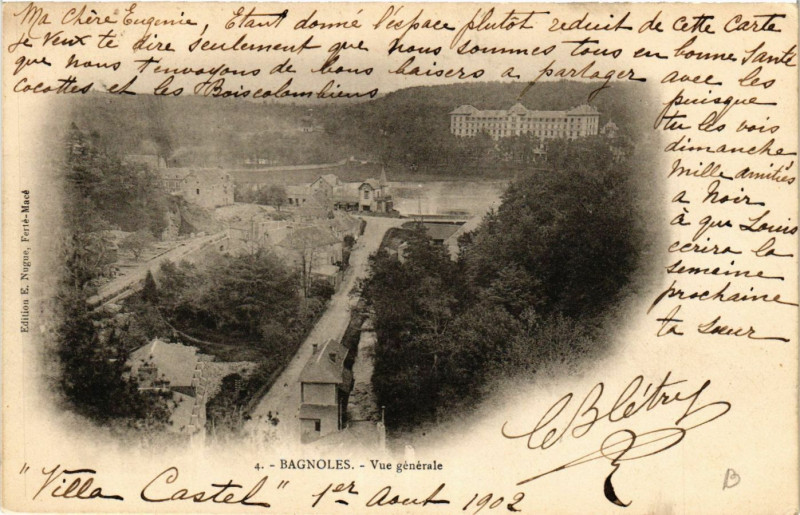 Ma Chère Eugénie, Etant donné l'espace plutôt reduit de cette carte
je veux te dire seulement que nous sommes tous en bonne santé
que nous t'envoyons de bons baisers a partager avec les
cocottes et les Boiscolombiens
puisque
tu les vois
dimanche
Mille amitiés
a Noir
à qui Louis
ecrira la
semaine
prochaine
ta Sœur
Blétry
Edition E. Nugue, Ferté-Macé
4. - BAGNOLES. - Vue générale
"Villa Castel" 1er Aout 1902
B